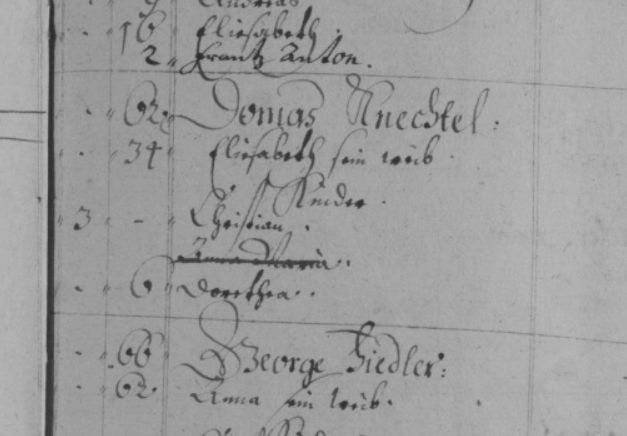 9 Andreas
16 Eliesabeth.
2 Frantz Anton.
62 Domas Knechtel:
34 Eliesabeth sein weib.
Kinder.
3 - Christian.
Anna Maria.
6 Dorethea.
66 George Fiedler:
62 Anna sein weib.